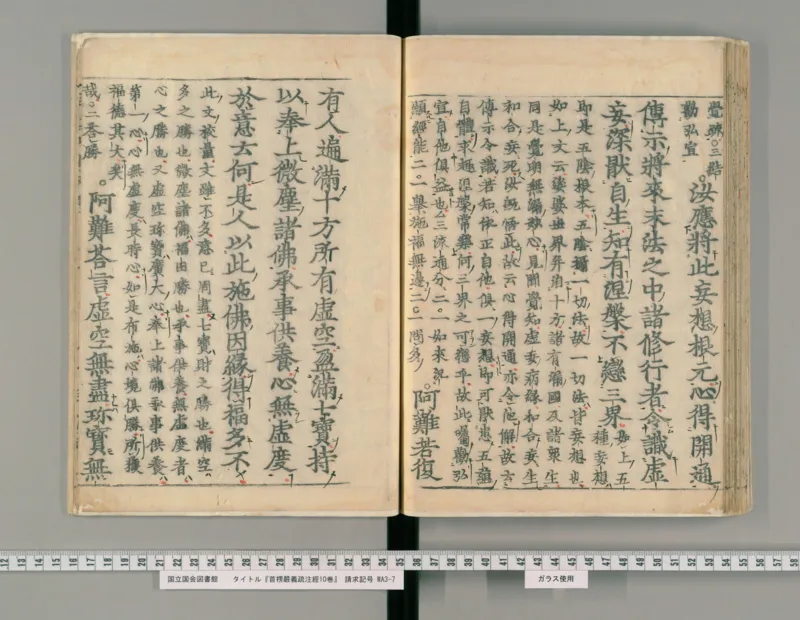 覺跡。三結
勸弘宣
。汝應將此妄想根元心得開通
傳示將來末法之中諸修行者令識虛
妄深猒自生知有涅槃不戀三界
如上五
種妄想
即是五陰根本。五陰攝一切法故一切法皆妄想也
如上文云娑婆世界并洎十方諸有漏國及諸衆生
同是覺明無漏妙心見聞覺知虛妄病緣和合妄生
和合妄死汝既悟此故云心得開通亦令他解故云
傳示令識若知 正自他俱一妄想即可猒患五蘊
自體求趣涅槃常樂何三界之可戀乎故此囑勸弘
宣自他俱益也。三流通分二。一如來
顯經能二。一舉施福無邊二。一問多
。阿難若復
有人遍滿十方所有虛空盈滿七寶持
以奉上微塵諸佛承事供養心無虛度
於意云何是人以此施佛因緣得福多不
此文校量文雖不多意已周盡七寶財之勝也滿空
多之勝也微塵諸佛福田勝也承事供養無虛度者
心之勝也又虛空珍寶廣大心奉上諸佛承事供養
第一心心無虛度長時心如是有施心境俱勝所獲
福德其大矣
哉。二荅勝
。阿難荅言虛空無盡珍寶無
国立国会図書館 タイトル『首楞嚴義疏注經10巻』 請求記号 WA3-7
ガラス使用